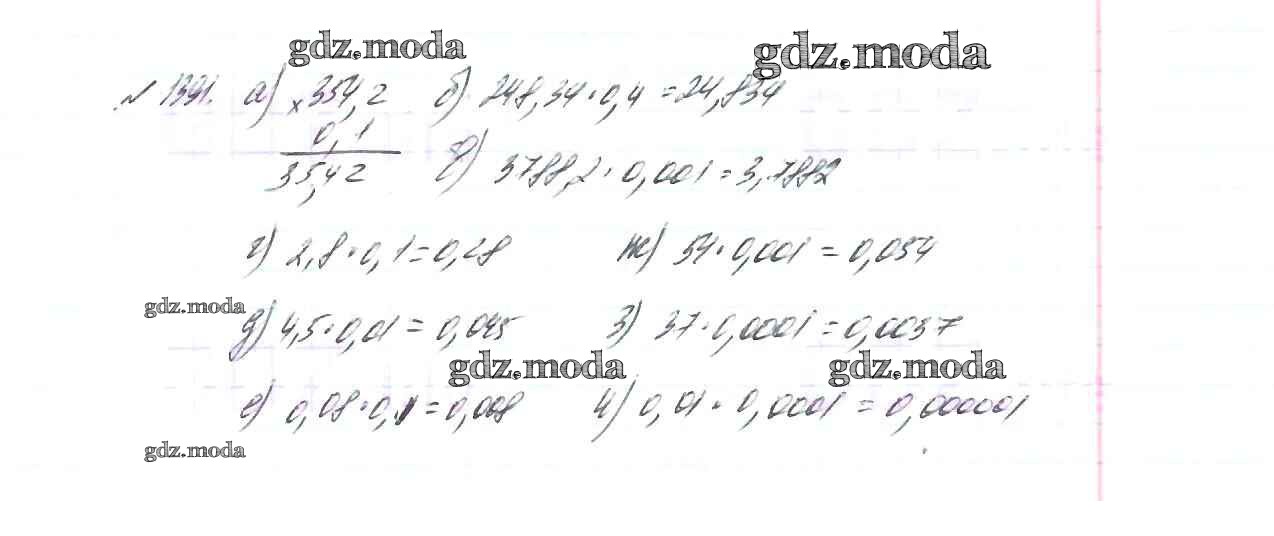 gdz.moda gdz.moda
№ 1391. а) × 354,2 б) 248,34 · 0,4 = 24,834
0,1
35,42 в) 3788,2 · 0,001 = 3,7882
г) 2,8 · 0,1 = 0,28 ж) 54 · 0,001 = 0,054
gdz.moda
д) 4,5 · 0,01 = 0,045 з) 37 · 0,0001 = 0,0037
gdz.moda gdz.moda
е) 0,08 · 0,1 = 0,008 и) 0,01 · 0,0001 = 0,000001
gdz.moda